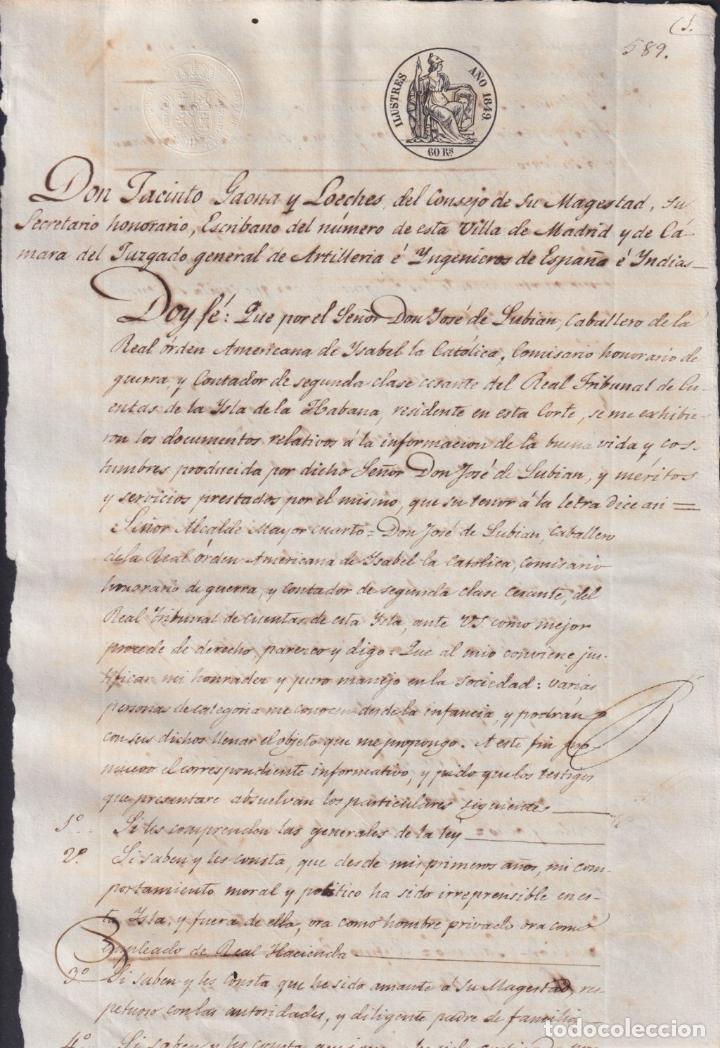 (S.
589.
ILUSTRES AÑO 1849.
60 Rs
Don Jacinto Gaona y Loeches, del Consejo de Su Magestad, su
Secretario honorario, Escribano del número de esta Villa de Madrid y de Cá-
mara del Juzgado general de Artilleria é Yngenieros de España é Indias—
Doy fé: Que por el Señor Don José de Lubian, Caballero de la
Real órden Americana de Isabel la Católica, Comisario honorario de
guerra, y Contador de segunda clase cesante del Real Tribunal de Cu-
entas de la Isla de la Habana, residente en esta Corte, se me exhibie-
ron los documentos relativos á la informacion de la buena vida y cos-
tumbres producida por dicho Señor Don José de Lubian, y méritos
y servicios prestados por el mismo, que su tenor á la letra dice asi =
Señor Alcalde Mayor cuarto = Don José de Lubian, Caballero
de la Real órden Americana de Isabel la Católica, comisario
honorario de guerra, y contador de segunda clase cesante, del
Real Tribunal de Cuentas de esta Ysla, ante VS como mejor
procede de derecho parezco y digo: Que al mio conviene jus-
tificar mi honradez y puro manejo en la sociedad: varias
personas de categoria me conocen desde la infancia, y podrán
con sus dichos llenar el objeto que me propongo. A este fin pro-
muevo el correspondiente informativo, y pido que los testigos
que presentare absuelvan los particulares siguientes
1º Si les comprenden las generales de la ley
2º Si saben y les consta, que desde mis primeros años, mi com-
portamiento moral y político ha sido irreprensible en es-
ta Ysla, y fuera de ella, ora como hombre privado ora como
Empleado de Real Hacienda
3º Si saben y les consta que he sido amante á Su Magestad, res-
petuoso con las autoridades, y diligente padre de familia
4º Si saben y les consta que
todocoleccion
todocoleccion.net